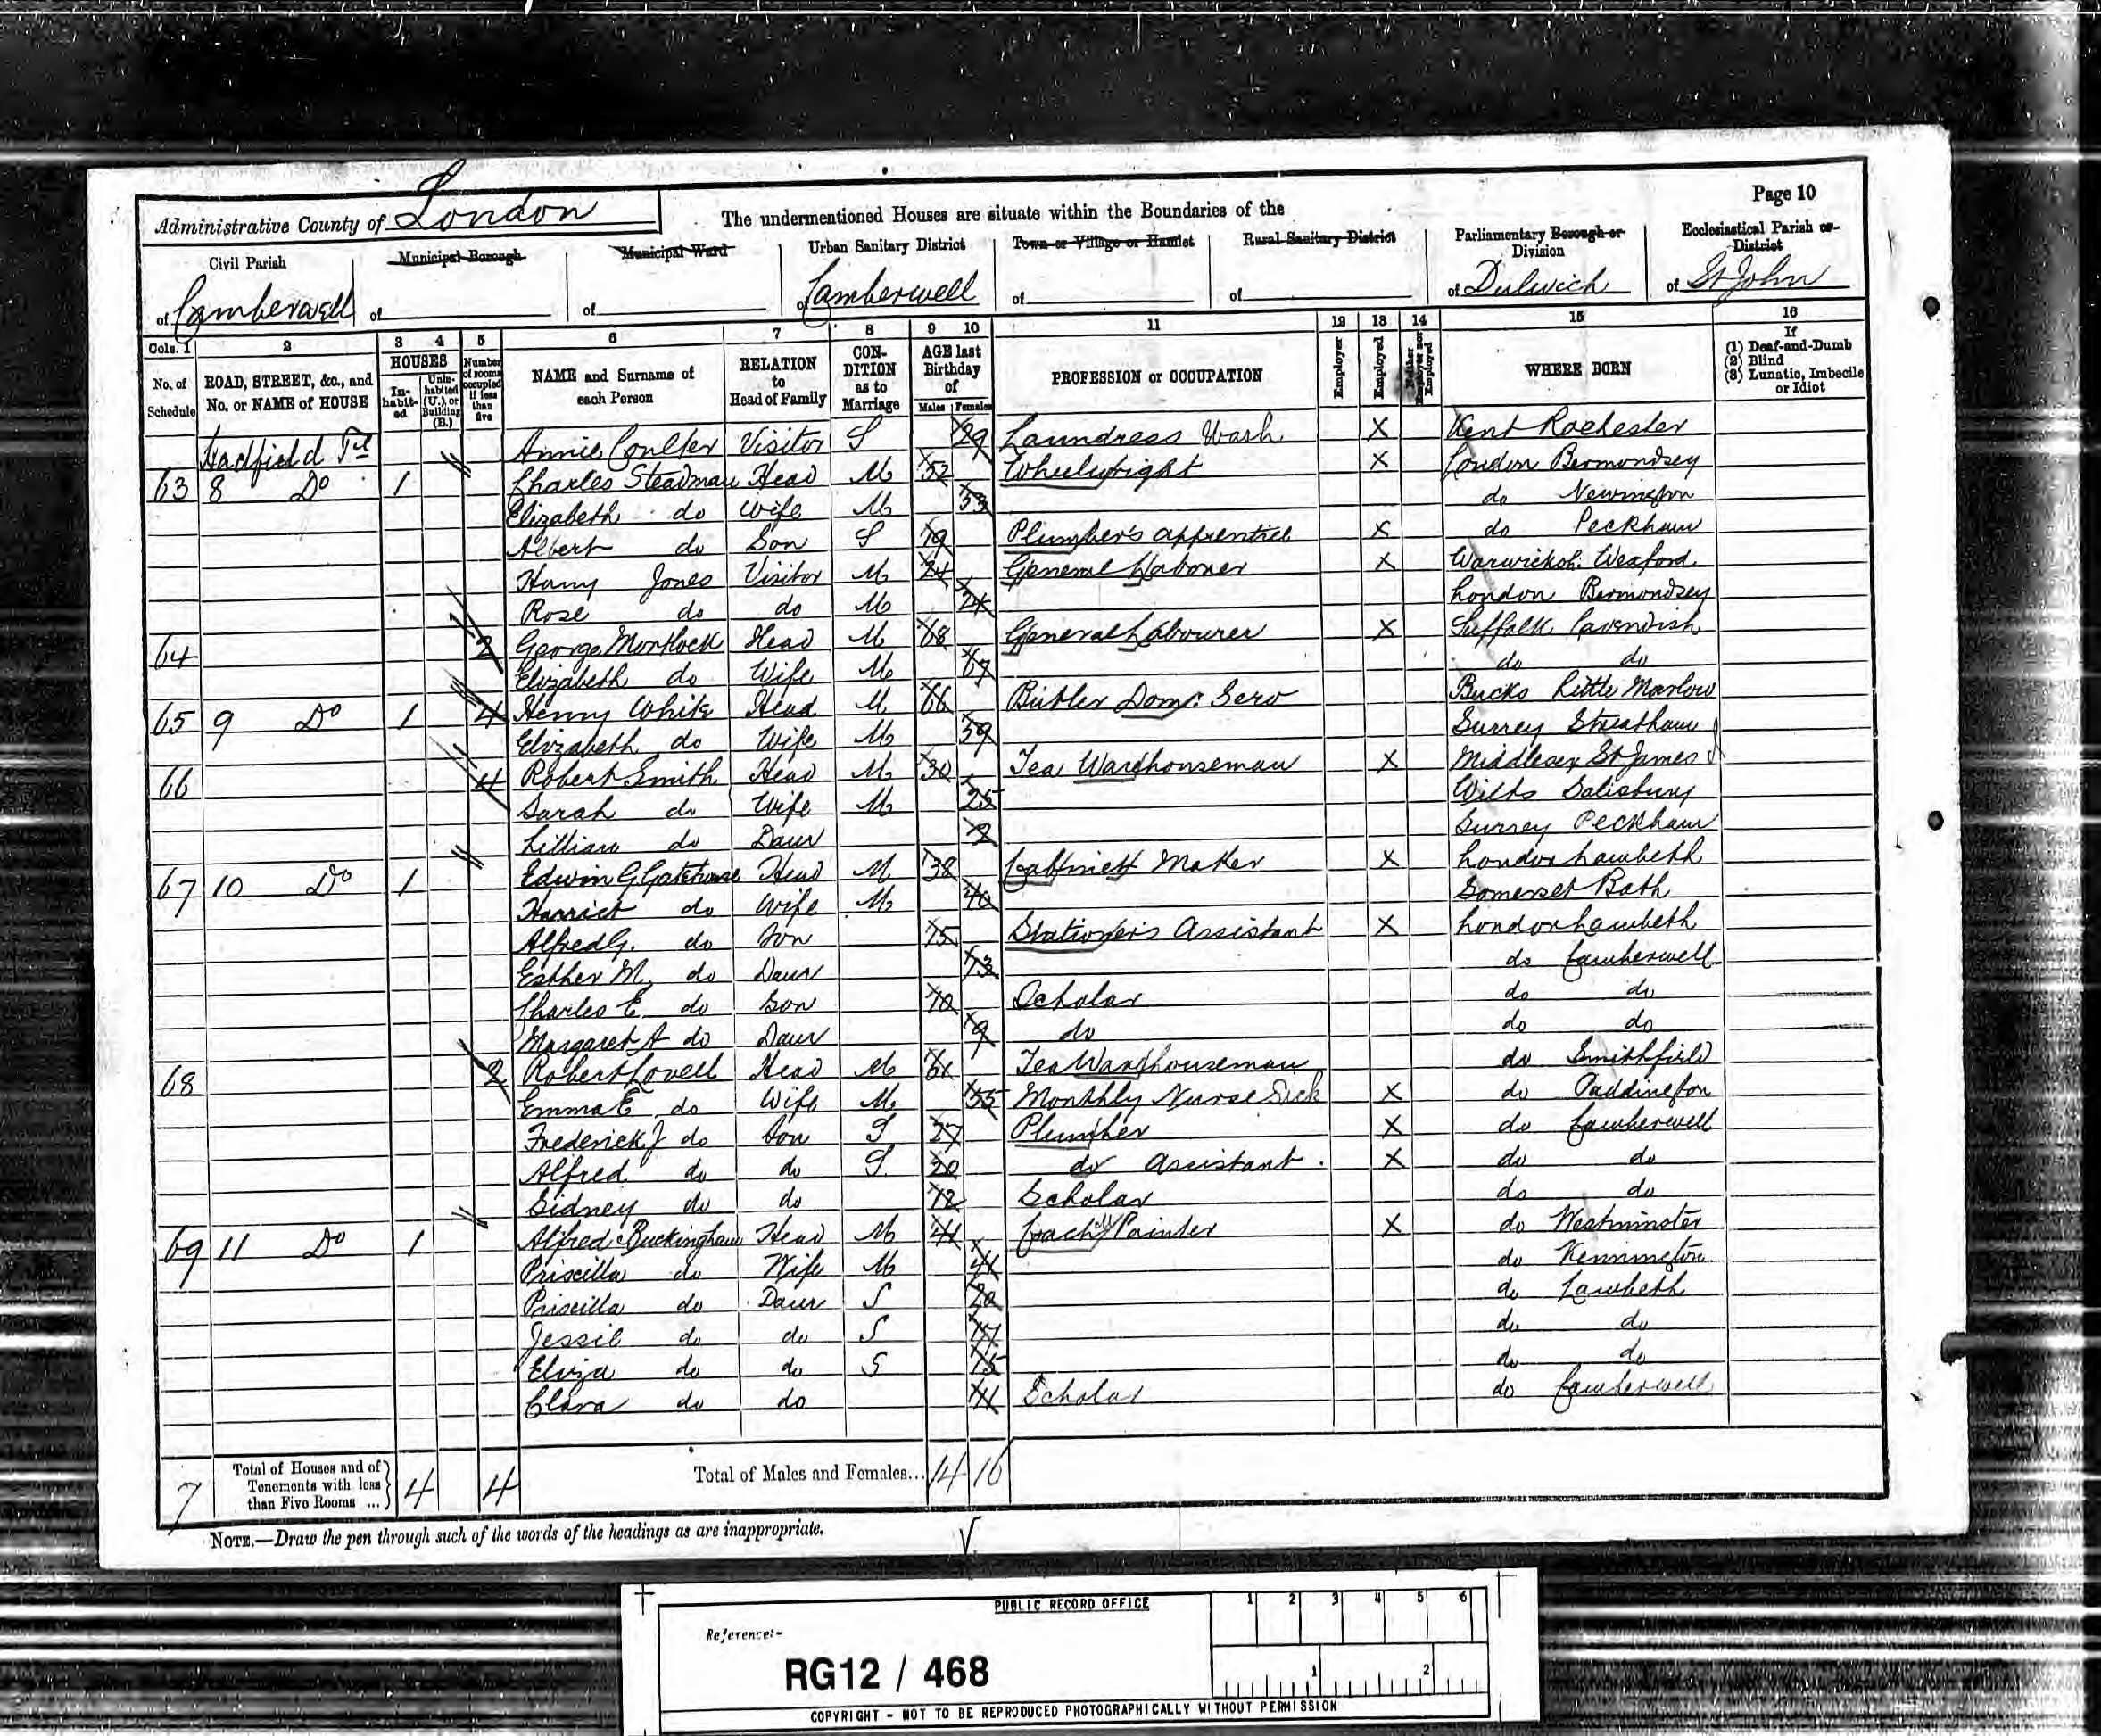 Page 10
Administrative County of London
The undermentioned Houses are situate within the Boundaries of the
Civil Parish
of Camberwell
Municipal Borough
of
Municipal Ward
of
Urban Sanitary District
of Camberwell
Town or Village or Hamlet
of
Rural Sanitary District
of
Parliamentary Borough or Division
of Dulwich
Ecclesiastical Parish or District
of St John
Cols. 1 2 3 4 5 6 7 8 9 10 11 12 13 14 15 16
No. of Schedule
ROAD, STREET, &c., and No. or NAME of HOUSE
HOUSES
Inhabited
Uninhabited (U.), or Building (B.)
Number of rooms occupied if less than five
NAME and Surname of each Person
RELATION to Head of Family
CONDITION as to Marriage
AGE last Birthday of
Males Females
PROFESSION or OCCUPATION
Employer
Employed
Neither Employer nor Employed
WHERE BORN
If
(1) Deaf-and-Dumb
(2) Blind
(3) Lunatic, Imbecile or Idiot
Hadfield Annie Coulter Visitor S 29 Laundress Wash X Kent Rochester
63 8 Do 1 Charles Steadman Head M 52 Wheelwright X London Bermondsey
Elizabeth do Wife M 53 do Newington
Albert do Son S 19 Plumber's apprentice X do Peckham
Harry Jones Visitor M 24 General Laborer X Warwicksh.
Rose do do M 24 London Bermondsey
64 2 George Mortlock Head M 68 General Labourer X Suffolk Cavendish
Elizabeth do Wife M 67 do do
65 9 Do 1 4 Henry White Head M 66 Butler Dom: Serv Bucks Little Marlow
Elizabeth do Wife M 59 Surrey Streatham
66 4 Robert Smith Head M 30 Tea Warehouseman X Middlesex St James
Sarah do Wife M 25 Wilts Salisbury
Lillian do Daur 2 Surrey Peckham
67 10 Do 1 Edwin G Gatehouse Head M 38 Cabinet Maker X London Lambeth
Harriet do Wife M 40 Somerset Bath
Alfred G. do Son 15 Stationer's Assistant X London Lambeth
Esther M. do Daur 13 do Camberwell
Charles E. do Son 10 Scholar do do
Margaret A do Daur 9 do do do
68 2 Robert Lovell Head M 61 Tea Warehouseman do Smithfield
Emma E do Wife M 55 Monthly Nurse Sick X do Paddington
Frederick J do Son S 27 Plumber X do Camberwell
Alfred do do S 20 do Assistant X do do
Sidney do do 12 Scholar do do
69 11 Do 1 Alfred Buckingham Head M 41 Coach Painter X do Westminster
Priscilla do Wife M 41 do Kennington
Priscilla do Daur S 20 do Lambeth
Jessie do do S 17 do do
Eliza do do S 15 do do
Clara do do 11 Scholar do Camberwell
7 Total of Houses and of Tenements with less than Five Rooms ... 4 4 Total of Males and Females... 14 16
NOTE.—Draw the pen through such of the words of the headings as are inappropriate.
PUBLIC RECORD OFFICE
1 2 3 4 5 6
Reference:-
RG12 / 468
1 2
COPYRIGHT - NOT TO BE REPRODUCED PHOTOGRAPHICALLY WITHOUT PERMISSION